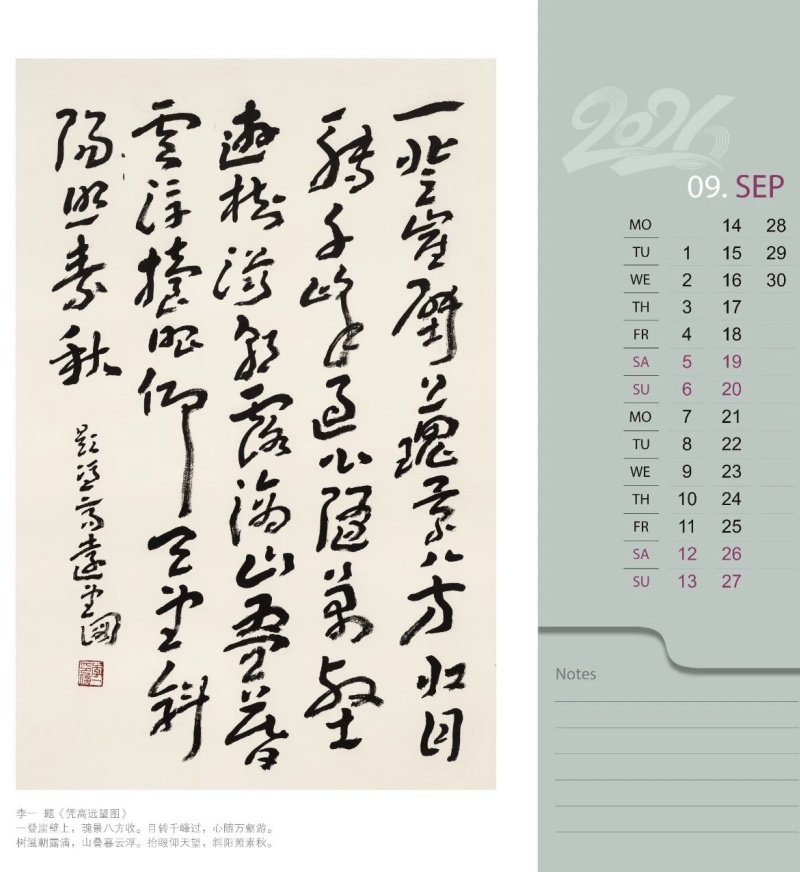 一登崖壁上瑰景八方收目
轉千峰過心隨萬壑
遊樹滋朝露滴山叠暮
雲浮擡眼仰天望斜
陽照素秋
題憑高遠望圖
李一 题《凭高远望图》
一登崖壁上，瑰景八方收。目转千峰过，心随万壑游。
树滋朝露滴，山叠暮云浮。抬眼仰天望，斜阳照素秋。
2026
09. SEP
MO 14 28
TU 1 15 29
WE 2 16 30
TH 3 17
FR 4 18
SA 5 19
SU 6 20
MO 7 21
TU 8 22
WE 9 23
TH 10 24
FR 11 25
SA 12 26
SU 13 27
Notes